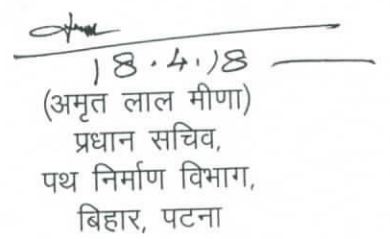 18.4.18
(अमृत लाल मीणा)
प्रधान सचिव,
पथ निर्माण विभाग,
बिहार, पटना